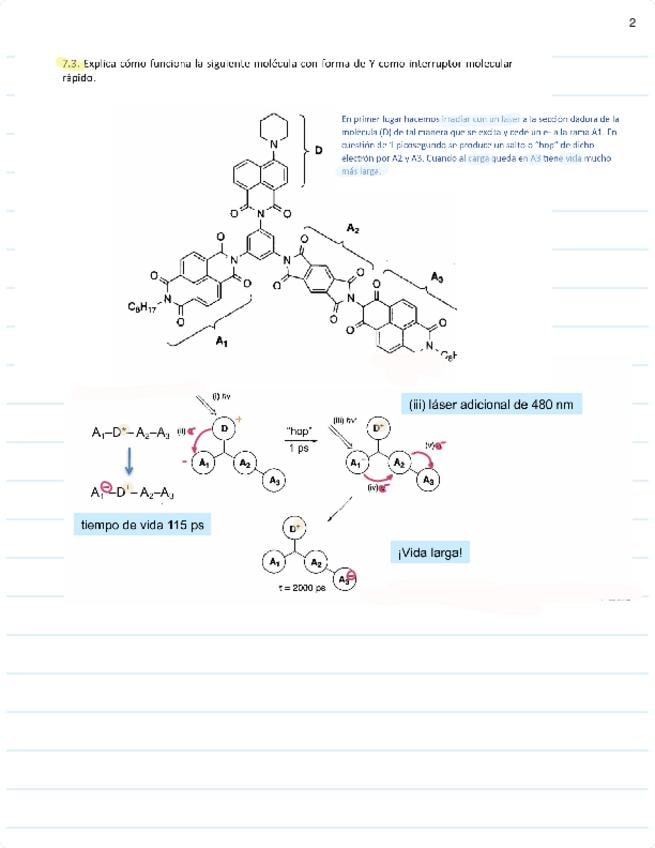 2
7.3. Explica cómo funciona la siguiente molécula con forma de Y como interruptor molecular
rápido.
En primer lugar hacemos irradiar con un laser a la sección dadora de la
molécula (D) de tal manera que se excita y cede un e- a la rama A1. En
cuestión de 1 picosegundo se produce un salto o "hop" de dicho
electrón por A2 y A3. Cuando al carga queda en A3 tiene vida mucho
más larga.
N
D
O O
N
A2
O
O
O O
N
N
O
O
N
O
O
N
O
A3
O
O
N
O
O
C8H17
A1
N
O
(i) hν
(iii) láser adicional de 480 nm
A1–D*–A2–A3
(ii) e-
D
+
"hop"
1 ps
(iii) hν'
D+
(v) e-
- A1
A2
A3
A1
A2
A3
(iv) e-
A1–D+–A2–A3
tiempo de vida 115 ps
D+
A1
A2
A3
¡Vida larga!
τ = 2000 ps